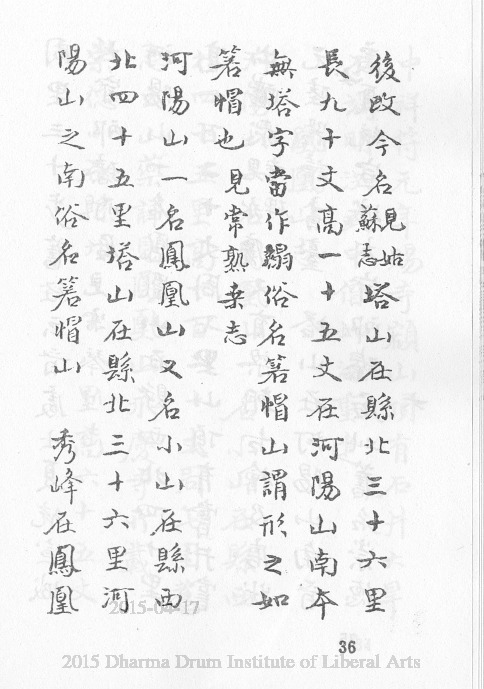 後改今名見姑蘇志塔山在縣北三十六里
長九十丈高一十五丈在河陽山南本
無塔字當作䎬俗名箬帽山謂形之如
箬帽也見常熟桒志
河陽山一名鳳凰山又名小山在縣西
北四十五里塔山在縣北三十六里河
陽山之南俗名箬帽山 秀峰在鳳凰
2015-04-17
36
2015 Dharma Drum Institute of Liberal Arts